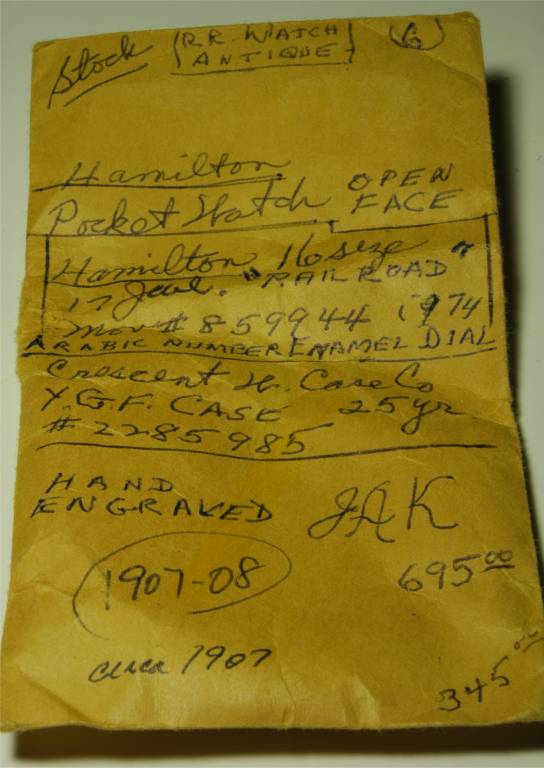 Stock
R.R. WATCH
ANTIQUE
6
Hamilton
Pocket Watch OPEN FACE
Hamilton 16 size
17 Jewl. "RAILROAD"
Mov# 859944 974
ARABIC NUMBER ENAMEL DIAL
Crescent W. Case Co
Y.G.F. CASE 25 yr
# 2285985
HAND
ENGRAVED JAK
1907-08
695.00
circa 1907
345